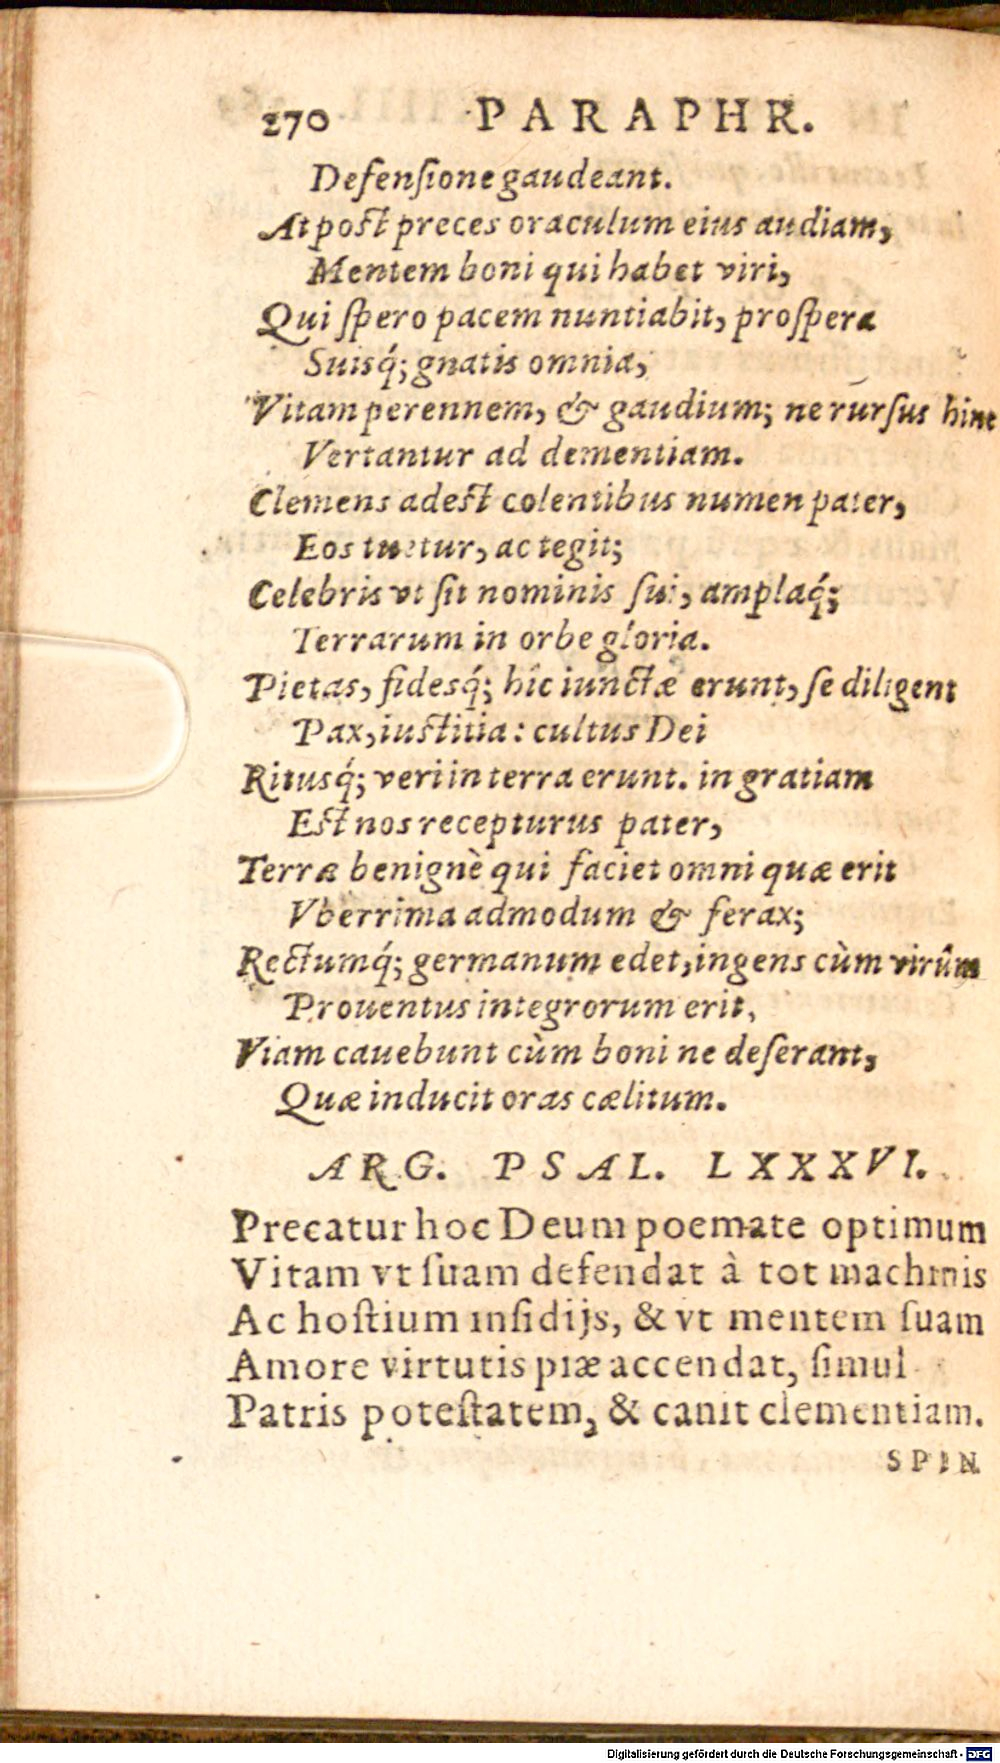 270 PARAPHR.
Defenſione gaudeant.
At poſt preces oraculum eius audiam,
Mentem boni qui habet viri,
Qui ſpero pacem nuntiabit, proſpera
Suisq́; gnatis omnia,
Vitam perennem, & gaudium; ne rūrſus hinc
Vertantur ad dementiam.
Clemens adeſt colentibus numen pater,
Eos tuetur, ac tegit;
Celebris vt ſit nominis ſui, amplaq́;
Terrarum in orbe gloria.
Pietas, fidesq́; hîc iunctæ erunt, ſe diligent
Pax, iuſtitia: cultus Dei
Ritusq́; veri in terra erunt. in gratiam
Eſt nos recepturus pater,
Terræ benignè qui faciet omni quæ erit
Vberrima admodum & ferax;
Rectumq́; germanum edet, ingens cùm virûm
Prouentus integrorum erit,
Viam cauebunt cùm boni ne deſerant,
Quæ inducit oras cælitum.
ARG. PSAL. LXXXVI.
Precatur hoc Deum poemate optimum
Vitam vt ſuam defendat à tot machinis
Ac hoſtium inſidijs, & vt mentem ſuam
Amore virtutis piæ accendat, ſimul
Patris poteſtatem, & canit clementiam.
SPIN
Digitalisierung gefördert durch die Deutsche Forschungsgemeinschaft - DFG